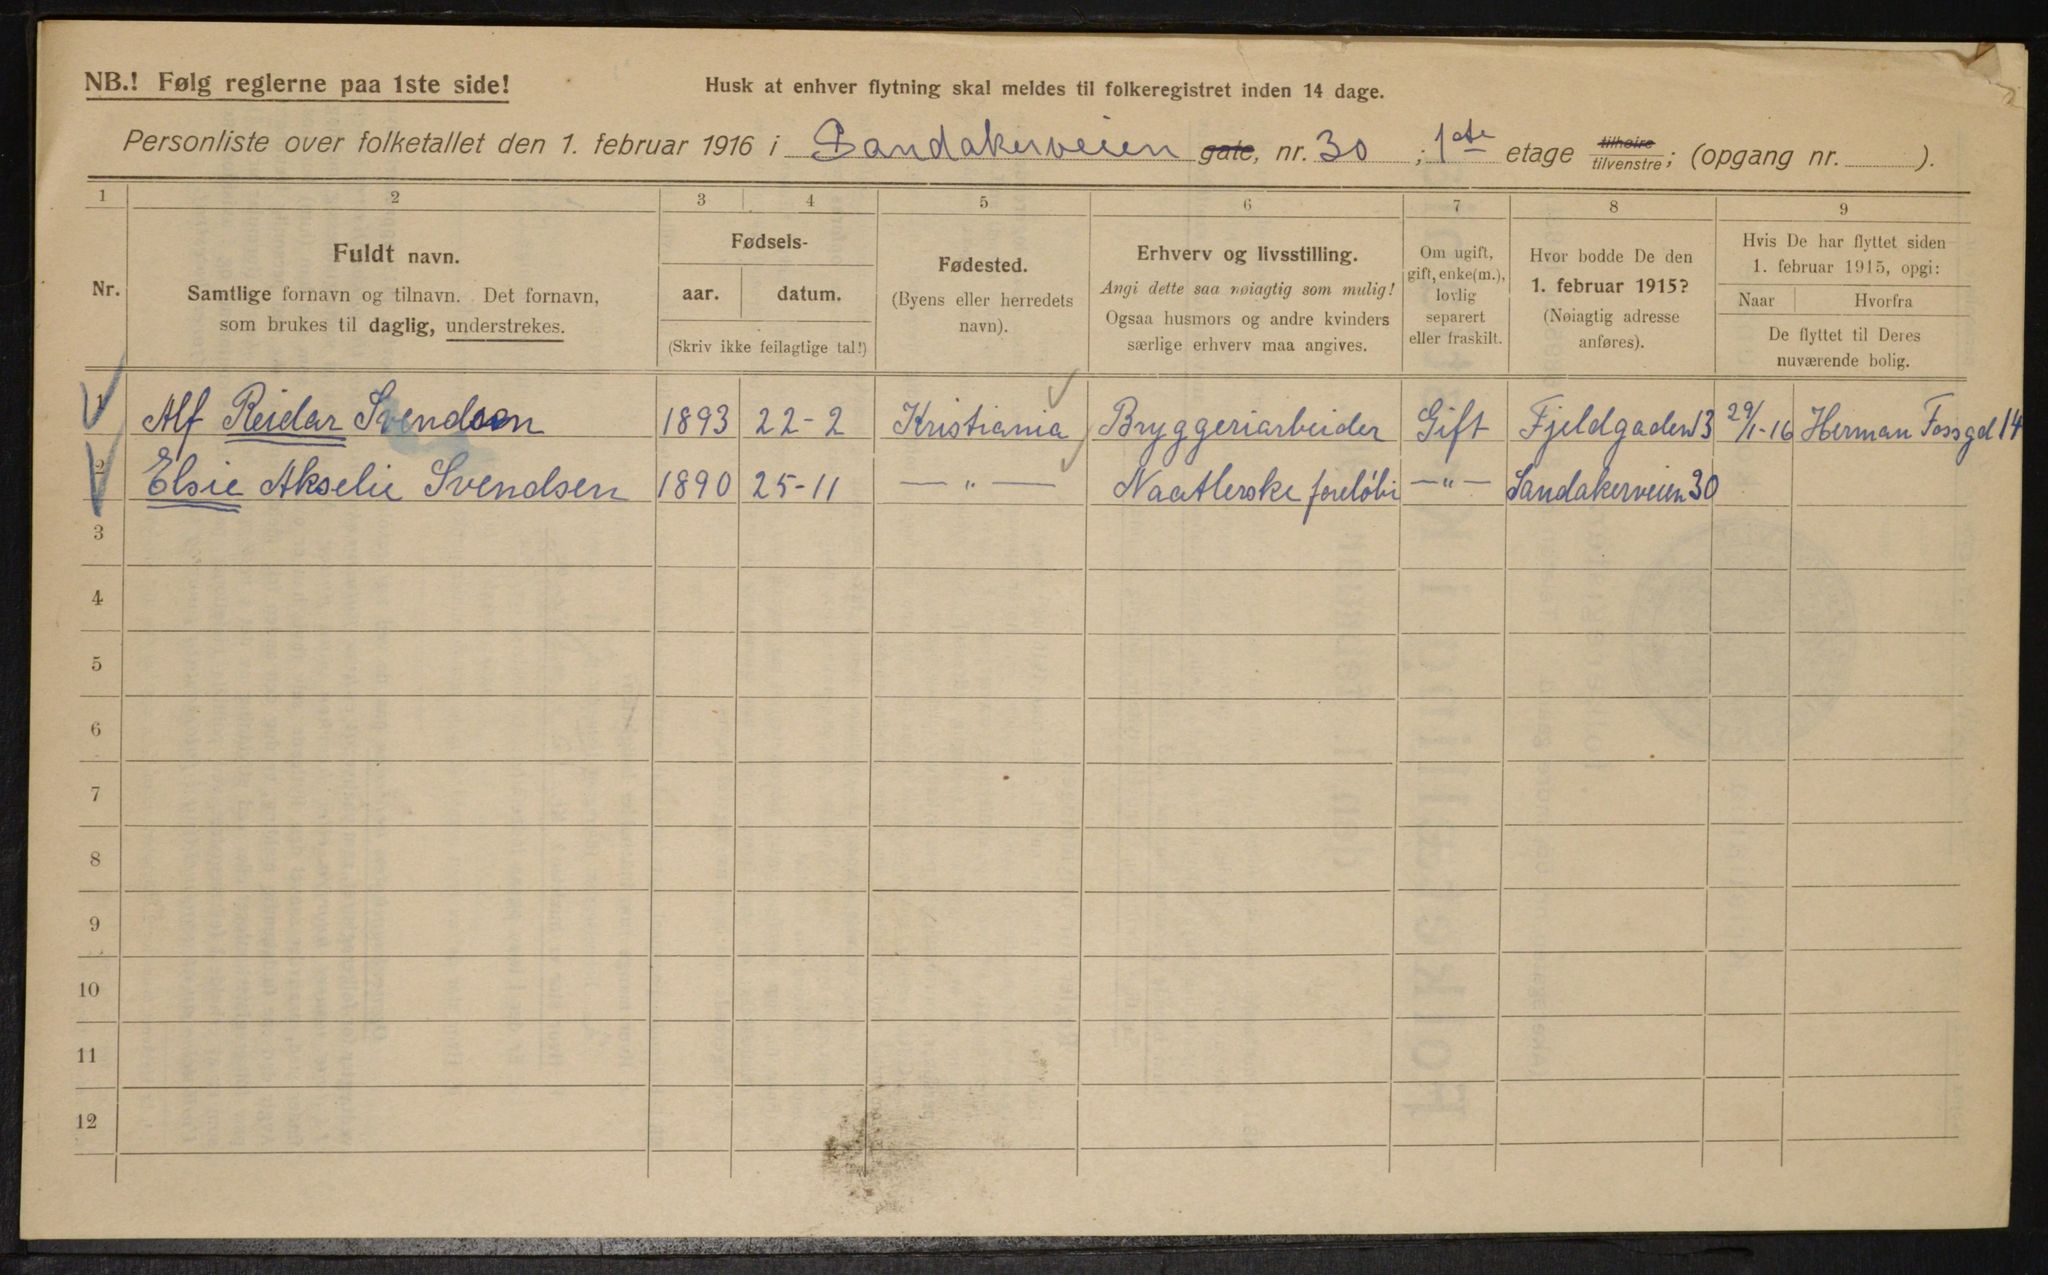 NB.! Følg reglerne paa 1ste side!
Husk at enhver flytning skal meldes til folkeregistret inden 14 dage.
Personliste over folketallet den 1. februar 1916 i Sandakerveien gate, nr. 30 ; 1ste etage tilhøire tilvenstre; (opgang nr. ).
1 2 3 4 5 6 7 8 9
Nr.
Fuldt navn.
Samtlige fornavn og tilnavn. Det fornavn,
som brukes til daglig, understrekes.
Fødsels-
aar. datum.
(Skriv ikke feilagtige tal!)
Fødested.
(Byens eller herredets
navn).
Erhverv og livsstilling.
Angi dette saa nøiagtig som mulig!
Ogsaa husmors og andre kvinders
særlige erhverv maa angives.
Om ugift,
gift, enke(m.),
lovlig
separert
eller fraskilt.
Hvor bodde De den
1. februar 1915?
(Nøiagtig adresse
anføres).
Hvis De har flyttet siden
1. februar 1915, opgi:
Naar Hvorfra
De flyttet til Deres
nuværende bolig.
1 Alf Reidar Svendsen 1893 22-2 Kristiania Bryggeriarbeider Gift Fjeldgaden 13 29/1-16 Herman Fossgd 14
2 Elsie Akselie Svendsen 1890 25-11 — " — Naatlerske foreløbi — " — Sandakerveien 30
3
4
5
6
7
8
9
10
11
12